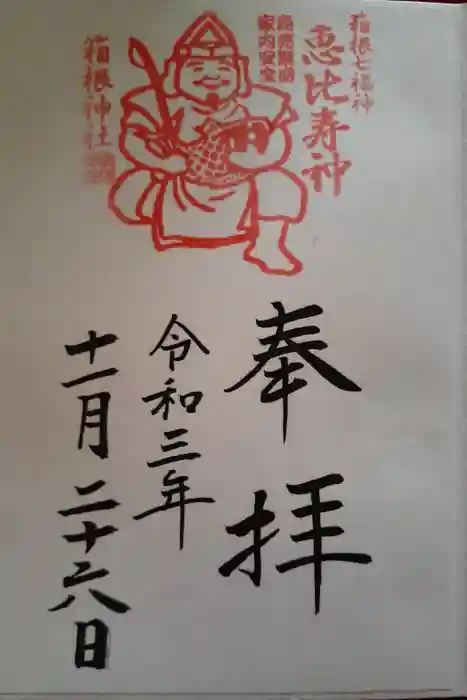 箱根七福神
恵比寿神
商売繁昌
家内安全
箱根神社
奉拝
令和三年
十一月二十六日